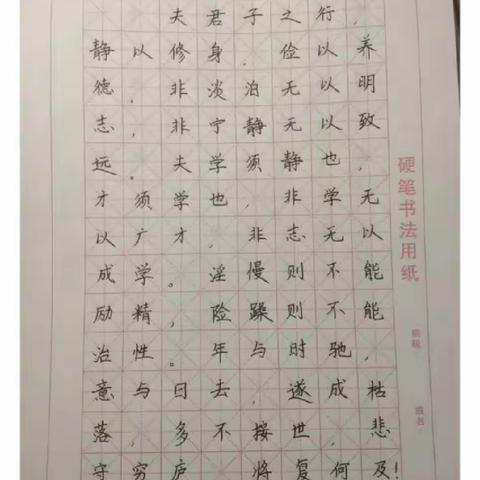 夫君子之行，
静以修身，俭以养
德。非淡泊无以明
志，非宁静无以致
远。夫学须静也，
才须学也，非学无
以广才，非志无以
成学。淫慢则不能
励精，险躁则不能
治性。年与时驰，
意与日去，遂成枯
落，多不接世，悲
守穷庐 将复何及！
硬笔书法用纸
班级
姓名：